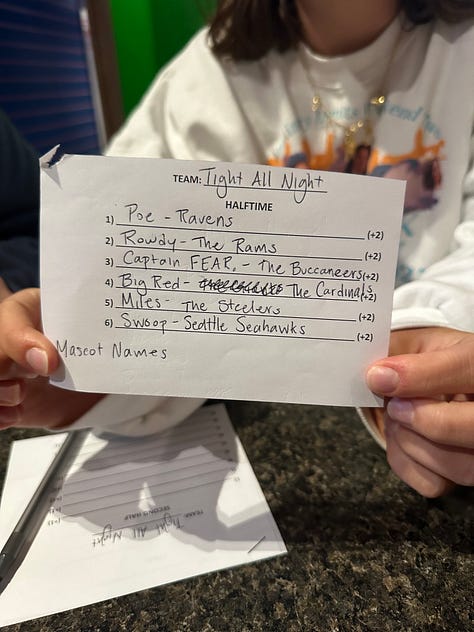 TEAM: Tight All Night
HALFTIME
1) Poe - Ravens (+2)
2) Rowdy - The Rams (+2)
3) Captain FEAR. - The Buccaneers (+2)
4) Big Red - The Cardinals (+2)
5) Miles - The Steelers (+2)
6) Swoop - Seattle Seahawks (+2)
Mascot Names
TEAM: Tight All Night
SECOND HALF